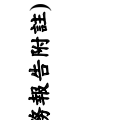 務報告附註)